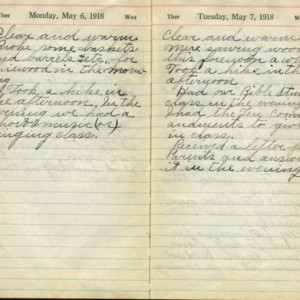 Ther Monday, May 6, 1918 Wea
Clear and warm
broke some baskets
and barrels etc., for
firewood in the morn-
ing
Took a hike in
the afternoon. In the
evening we had a
chorus music (or)
singing class.
Ther Tuesday, May 7, 1918 Wea
Clear and warm
Were sawing wood
this forenoon a wh
Took a hike in th
afternoon.
Had our Bible Stu
class in the evenin
I had the Ten Com
andments to giv
in class.
Received a letter f
Parents and answ
it in the evening